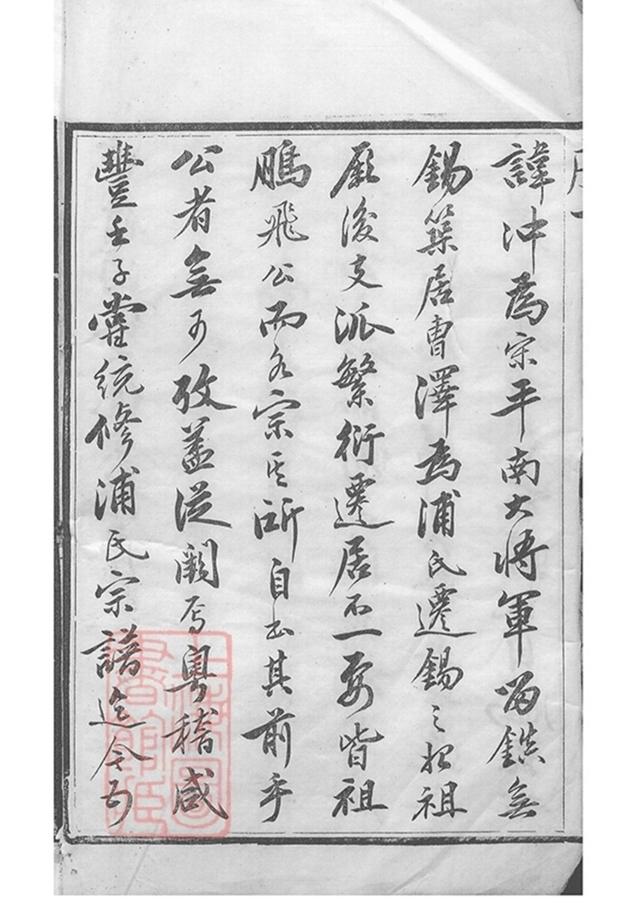 諱沖為宋平南大將軍留鎮無
錫築居曹澤為浦氏遷錫之始祖
厥後支派繁衍遷居不一要皆祖
鵬飛公而各宗其所自出其前乎
公者無可攷蓋從闕焉粵稽咸
豐壬子嘗統修浦氏宗譜迄今